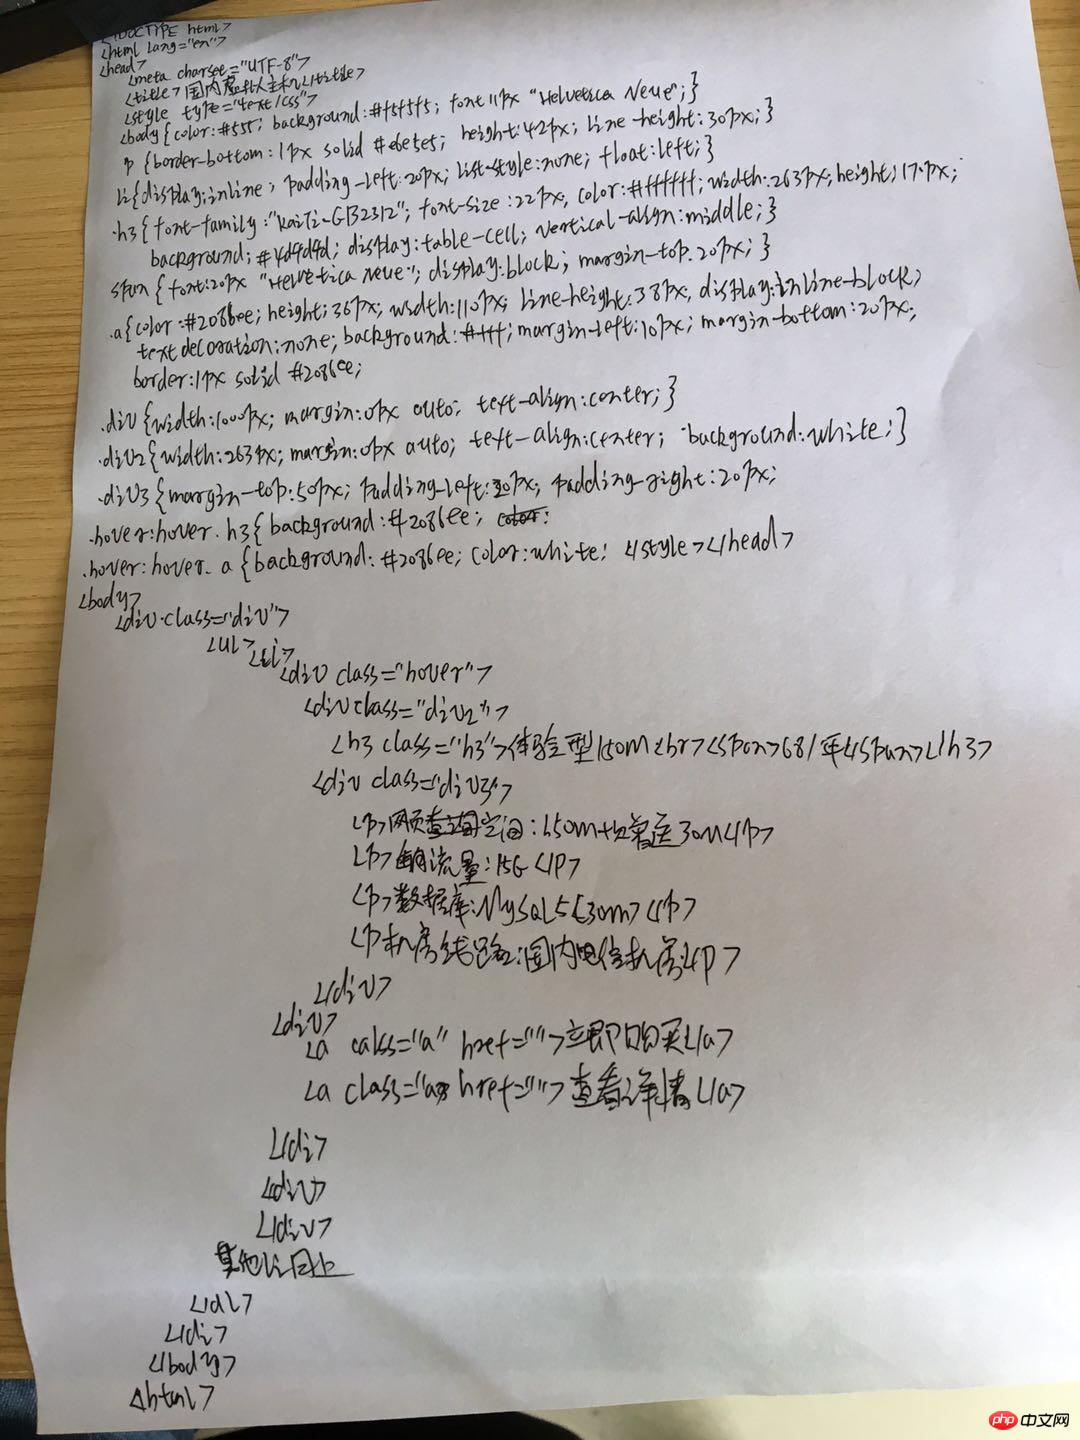 <!DOCTYPE html>
<html lang="en">
<head>
<meta charset="UTF-8">
<title>国内虚拟主机</title>
<style type="text/css">
<body{color:#555; background:#f5f5f5; font 11px "Helvetica Neue";}
p {border-bottom:1px solid #e6e5e5; height:42px; line-height:30px;}
li{display:inline; padding-left:20px; list-style:none; float:left;}
.h3{font-family:"KaiTi-GB2312"; font-size:22px, color:#ffffff; width:263px; height:17px;
background:#4d4d4d; display:table-cell; vertical-align:middle;}
span{font:20px "Helvetica Neue"; display:block; margin-top:20px;}
.a{color:#2086ee; height:36px, width:110px; line-height:38px, display:inline-block;
text decoration:none; background:#fff; margin-left:10px; margin-bottom:20px;
border:1px solid #2086ee;
.div{width:1000px; margin:0px auto; text-align:center;}
.div2{width:263px; margin:0px auto; text-align:center; background:white;}
.div3{margin-top:50px; padding-left:20px; padding-right:20px;
.hover:hover. h3{background:#2086ee; color:
.hover:hover. a{background:#2086ee; color:white; </style></head>
<body>
<div class="div">
<ul>
<li>
<div class="hover">
<div class="div2">
<h3 class="h3">体验型150m<br><span>68/年</span></h3>
<div class="div3">
<p>网页空间:150m+次着送30m</p>
<p>流量:15G</p>
<p>数据库:MySQL5(30m)</p>
<p机房线路:国内电信机房</p>
</div>
<div>
<a calss="a" href="">立即购买</a>
<a class="a" href="">查看详情</a>
</di>
<div>
</div>
其他li同上
</ul>
</di>
</body>
<html>
php 中文网